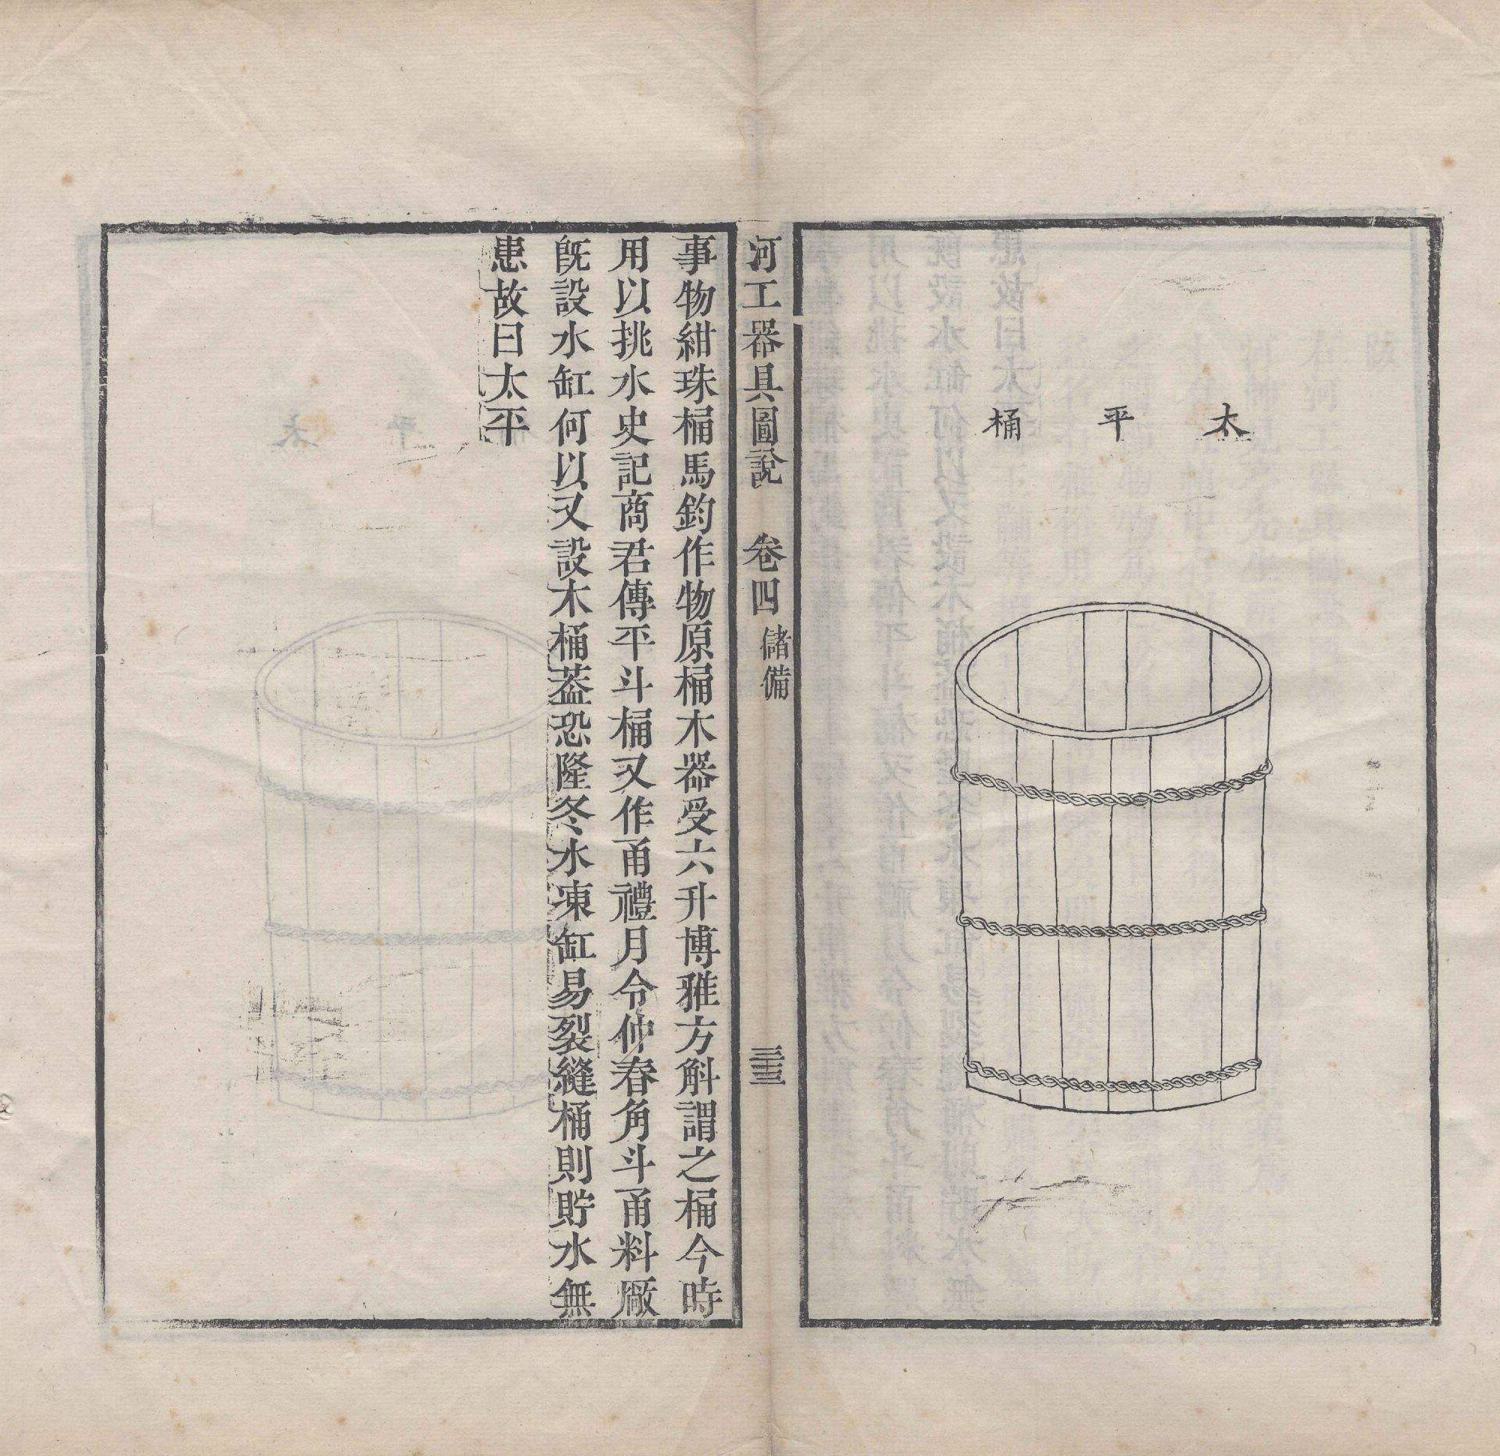 太平桶
河工器具圖說 卷四 儲備 三十三
事物紺珠桶馬鈞作物原桶木器受六升博雅方斛謂之桶今時
用以挑水史記商君傳平斗桶又作甬禮月令仲春角斗甬料厰
旣設水缸何以又設木桶葢恐隆冬水凍缸易裂縫桶則貯水無
患故曰太平